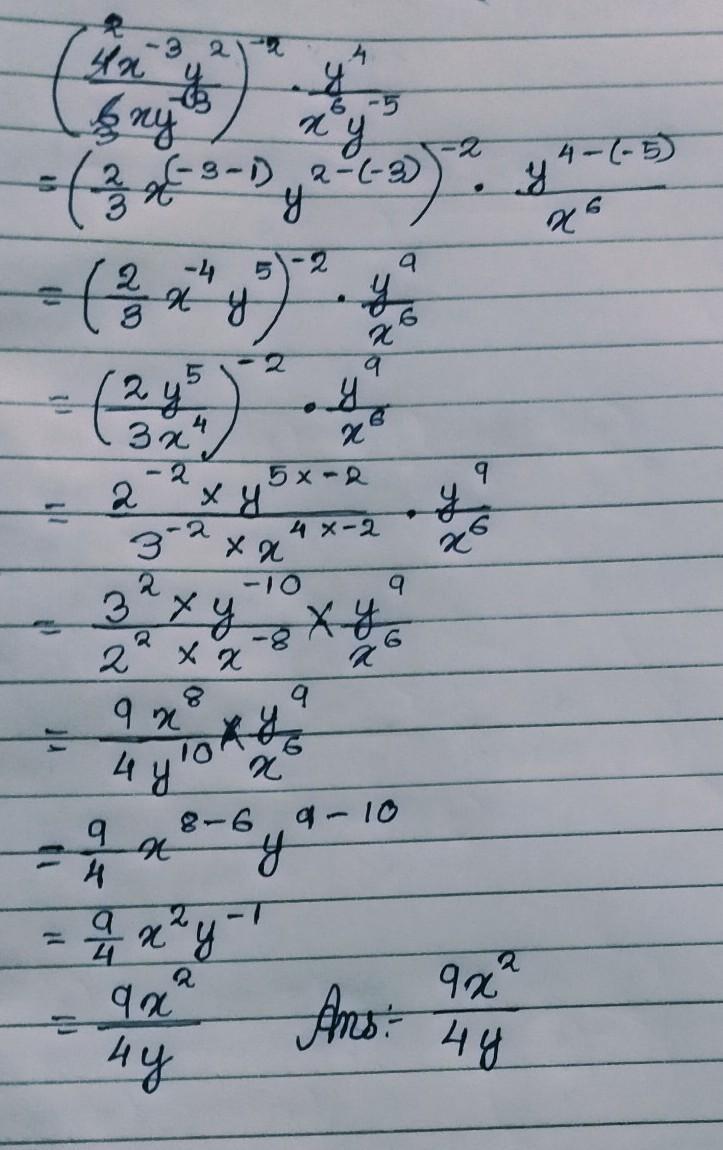 (4x^-3 y^2 / 6xy^-3)^-2 · y^4 / x^6 y^-5
= (2/3 x^(-3-1) y^2-(-3))^-2 · y^4-(-5) / x^6
= (2/3 x^-4 y^5)^-2 · y^9 / x^6
= (2y^5 / 3x^4)^-2 · y^9 / x^6
= 2^-2 × y^5×-2 / 3^-2 × x^4×-2 · y^9 / x^6
= 3^2 × y^-10 / 2^2 × x^-8 × y^9 / x^6
= 9x^8 / 4y^10 × y^9 / x^6
= 9/4 x^8-6 y^9-10
= 9/4 x^2 y^-1
= 9x^2 / 4y Ans:- 9x^2 / 4y